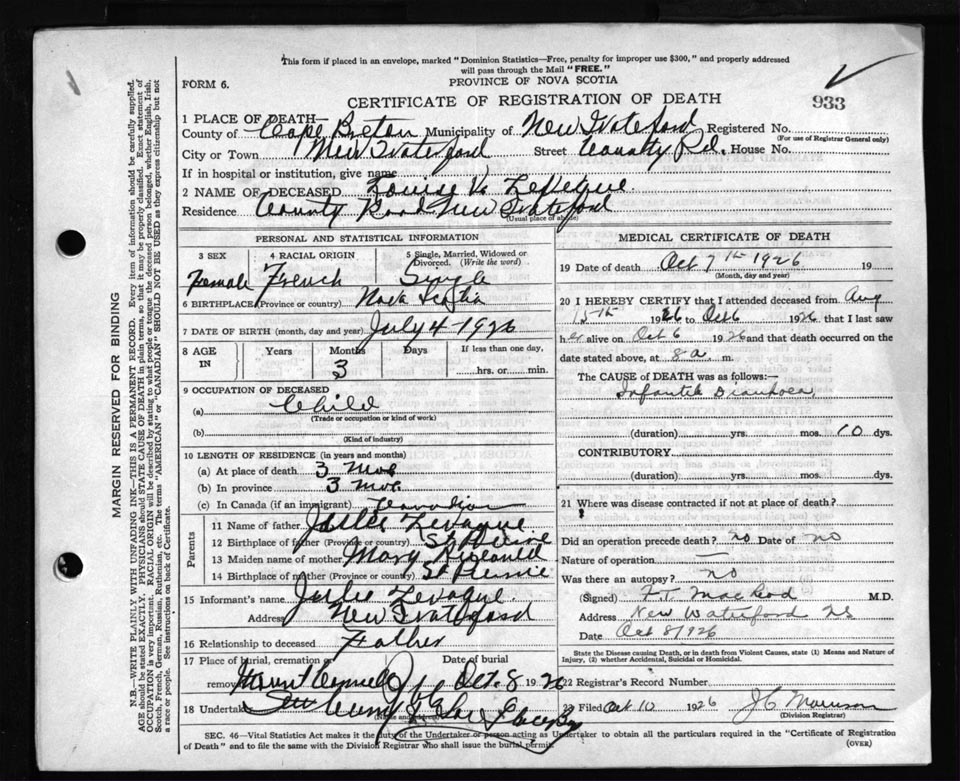 This form if placed in an envelope, marked "Dominion Statistics—Free, penalty for improper use $300," and properly addressed
will pass through the Mail "FREE."
FORM 6.
PROVINCE OF NOVA SCOTIA
CERTIFICATE OF REGISTRATION OF DEATH
933
1 PLACE OF DEATH—
County of Cape Breton Municipality of New Waterford Registered No.
(For use of Registrar General only)
City or Town New Waterford Street County Rd. House No.
If in hospital or institution, give name
2 NAME OF DECEASED Louise V. LeVeque
Residence County Road New Waterford
(Usual place of abode)
PERSONAL AND STATISTICAL INFORMATION
3 SEX 4 RACIAL ORIGIN 5 Single, Married, Widowed or Divorced. (Write the word)
Female French Single
6 BIRTHPLACE (Province or country) Nova Scotia
7 DATE OF BIRTH (month, day and year) July 4-1926
8 AGE IN Years Months Days If less than one day,
3 hrs. or min.
9 OCCUPATION OF DECEASED
(a) Child
(Trade or occupation or kind of work)
(b)
(Kind of industry)
10 LENGTH OF RESIDENCE (in years and months)
(a) At place of death 3 Mos
(b) In province 3 Mos
(c) In Canada (if an immigrant) Canadian
Parents
11 Name of father Jules Levaque
12 Birthplace of father (Province or country) St Pierre
13 Maiden name of mother Mary
14 Birthplace of mother (Province or country) St Pierre
15 Informant's name Jules Levaque
Address New Waterford
16 Relationship to deceased Father
17 Place of burial, cremation or removal Date of burial
Mount Carmel Oct. 8 1926
18 Undertaker Glace Bay
(Name and address)
MEDICAL CERTIFICATE OF DEATH
19 Date of death Oct 7th 1926 19
(Month, day and year)
20 I HEREBY CERTIFY that I attended deceased from Aug
15th 1926 to Oct 6 1926 that I last saw
her alive on Oct 6 1926 and that death occurred on the
date stated above, at 8 a. m.
The CAUSE OF DEATH was as follows:—
Infantile Diarrhoea
(duration) yrs. mos. 10 dys.
CONTRIBUTORY
(duration) yrs. mos. dys.
21 Where was disease contracted if not at place of death?
Did an operation precede death? no Date of no
Nature of operation —
Was there an autopsy? no
(Signed) F.T. MacLeod M.D.
New Waterford NS
Date Oct 8/1926
State the Disease causing Death, or in death from Violent Causes, state (1) Means and Nature of
Injury, (2) whether Accidental, Suicidal or Homicidal.
22 Registrar's Record Number
23 Filed Oct 10 1926 J C Morrison
(Division Registrar)
SEC. 46—Vital Statistics Act makes it the duty of the Undertaker or person acting as Undertaker to obtain all the particulars required in the "Certificate of Registration
of Death" and to file the same with the Division Registrar who shall issue the burial permit.
(OVER)
MARGIN RESERVED FOR BINDING
N.B.—WRITE PLAINLY WITH UNFADING INK—THIS IS A PERMANENT RECORD. Every item of information should be carefully supplied.
AGE should be stated EXACTLY. PHYSICIANS should STATE CAUSE OF DEATH in plain terms, so that it may be properly classified. Exact statement of
OCCUPATION is very important. RACIAL ORIGIN will be described by stating to what people or tongue the deceased person belonged, whether English, Irish,
Scotch, French, German, Russian, Ruthenian, etc. The terms "AMERICAN" or "CANADIAN" SHOULD NOT BE USED as they express citizenship but not
a race or people. See instructions on back of Certificate.